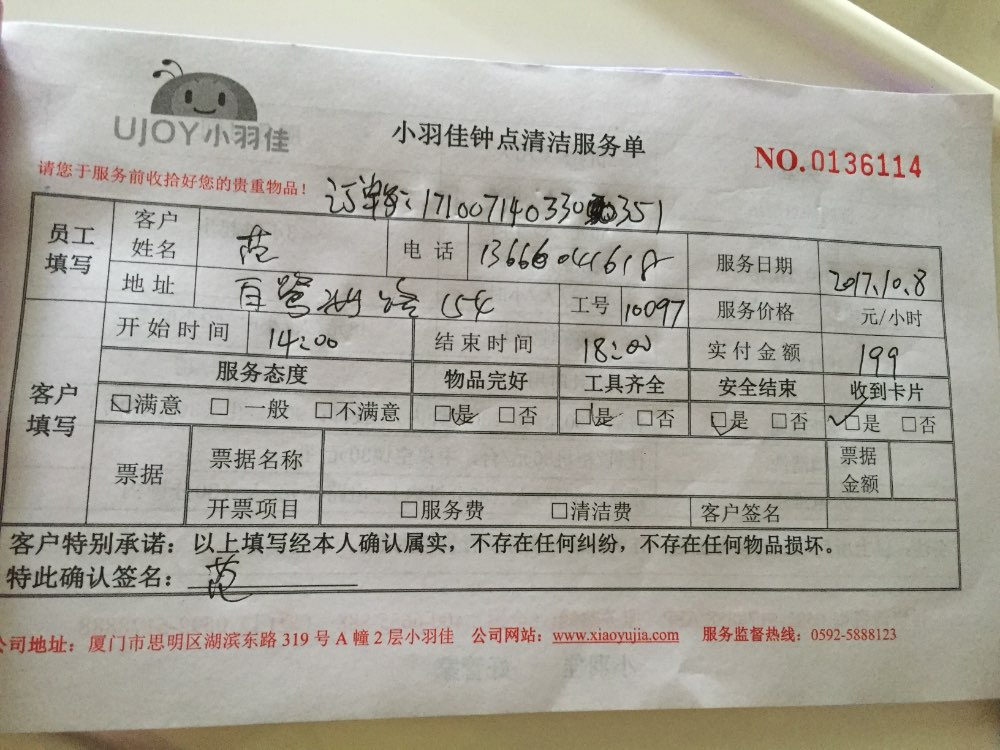 UJOY小羽佳
小羽佳钟点清洁服务单
NO.0136114
请您于服务前收拾好您的贵重物品！
订单号：171007140330 351
员工填写 客户姓名 范 电话 13666041618 服务日期 2017.10.8
地址 白鹭洲路154 工号 10097 服务价格 元/小时
客户填写 开始时间 14:00 结束时间 18:00 实付金额 199
服务态度 物品完好 工具齐全 安全结束 收到卡片
☑满意 □一般 □不满意 ☑是 □否 ☑是 □否 ☑是 □否 ☑是 □否
票据 票据名称 票据金额
开票项目 □服务费 □清洁费 客户签名
客户特别承诺：以上填写经本人确认属实，不存在任何纠纷，不存在任何物品损坏。
特此确认签名：范
公司地址：厦门市思明区湖滨东路319号A幢2层小羽佳 公司网站：www.xiaoyujia.com 服务监督热线：0592-5888123